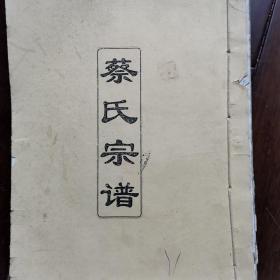 蔡氏宗谱